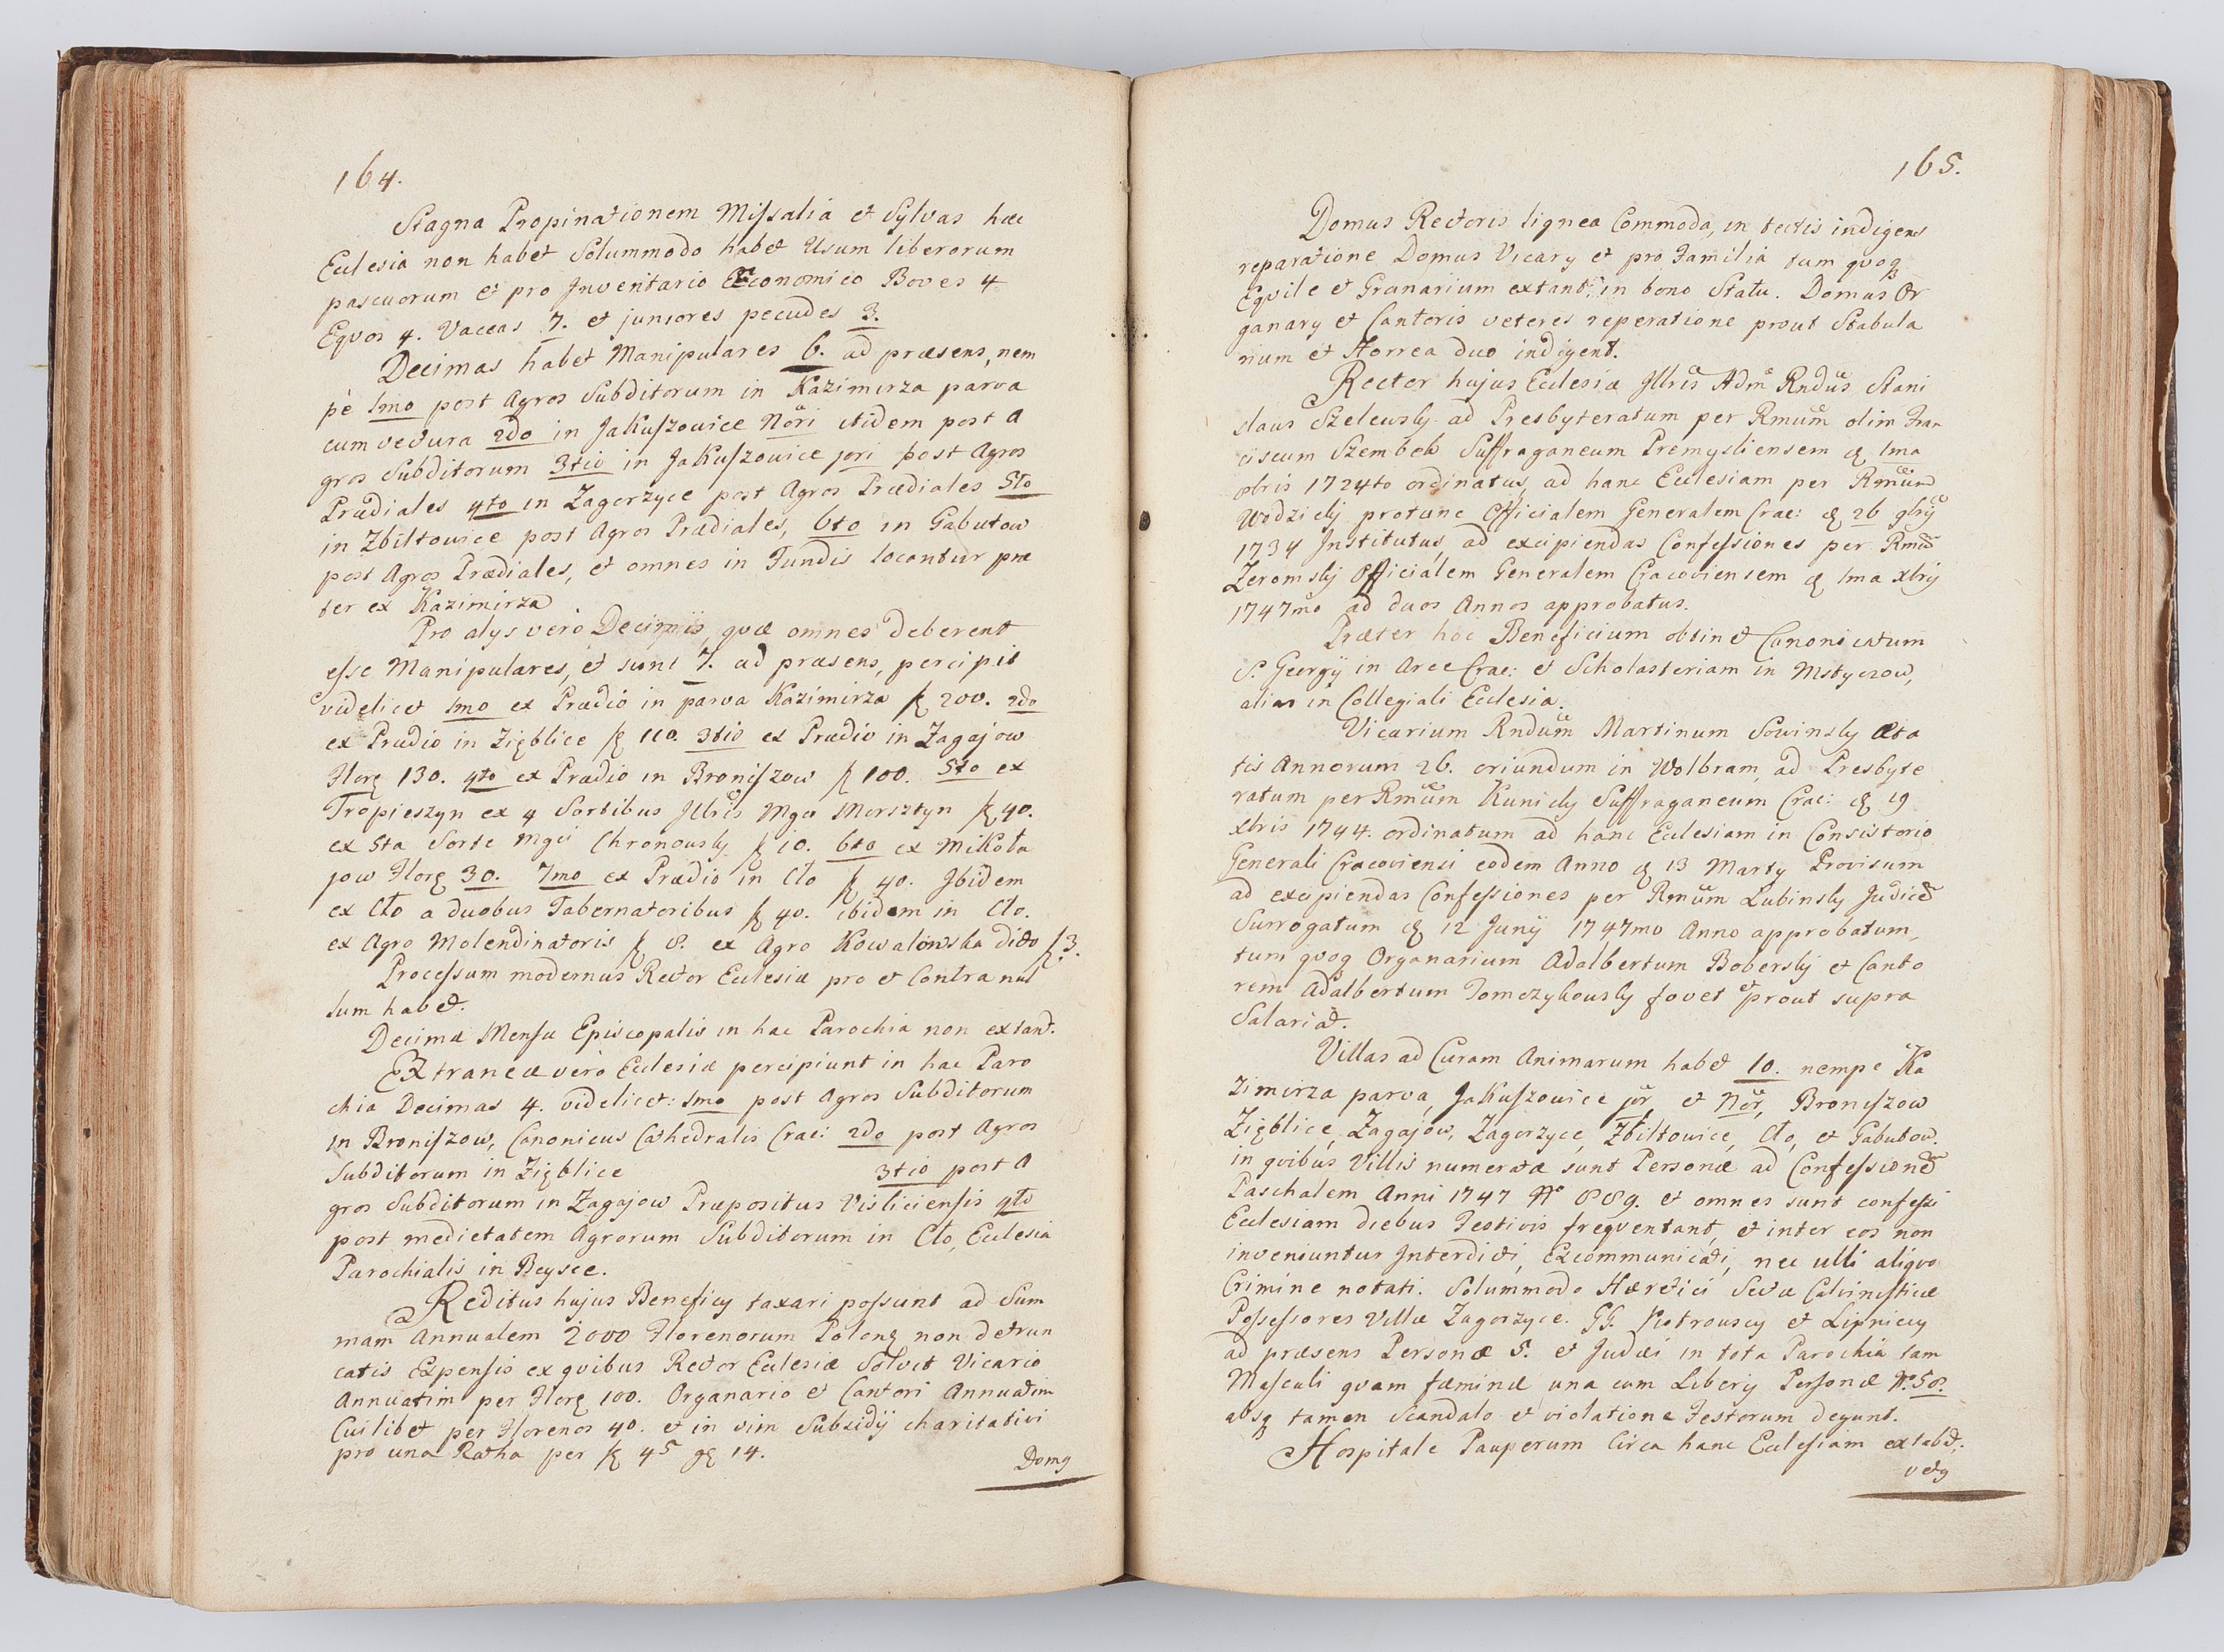 164.
Stagna Propinationem Missalia et Sylvas hæc
Ecclesia non habet Solummodo habet Usum liberorum
pascuorum et pro Inventario Œconomico Boves 4
Eqvos 4. Vaccas 7. et juniores pecudes 3.
Decimas habet Manipulares 6. ad præsens, nem
pè 1mo post Agros Subditorum in Kazimirza parva
cum vectura 2do in Jakuszowice Nori itidem post A
gros Subditorum 3tio in Jakuszowice jori post Agros
Prædiales 4to in Zagorzyce post Agros Prædiales 5to
in Zbiltowice post Agros Prædiales, 6to in Gabutow
post Agros Prædiales, et omnes in Fundis locantur præ
ter ex Kazimirza
Pro alys verò Decimis, qvæ omnes deberent
esse Manipulares, et sunt 7. ad præsens, percipit
videlicet 1mo ex Prædio in parva Kazimirza f 200. 2do
ex Prædio in Zięblice f 110. 3tio ex Prædio in Zagajow
Flor 130. 4to ex Prædio in Broniszow f 100. 5to ex
Tropieszyn ex 4 Sortibus Illris Mgci Morsztyn f 40.
ex 5ta Sorte Mgci Chronowsky f 10. 6to ex Mikoła
jow Flor 30. 7mo ex Prædio in Cło f 40. Ibidem
ex Cło a duobus Tabernatoribus f 40. ibidem in Cło.
ex Agro Molendinatoris f 8. ex Agro Kowalowska dicto f 3.
Processum modernus Rector Ecclesiæ pro et Contra nul
lum habet.
Decimæ Mensæ Episcopalis in hac Parochia non extant.
Extraneæ verò Ecclesiæ percipiunt in hac Paro
chia Decimas 4. videlicet: 1mo post Agros Subditorum
in Broniszow, Canonicus Cathedralis Crac: 2do post Agros
Subditorum in Zięblice 3tio post A
gros Subditorum in Zagajow Præpositus Visliciensis 4to
post medietatem Agrorum Subditorum in Cło, Ecclesia
Parochialis in Beysce.
Reditus hujus Beneficy taxari possunt ad Sum
mam Annualem 2000 Florenorum Polon non detrun
catis Expensis ex qvibus Rector Ecclesiæ Solvit Vicario
Annuatim per Flor 100. Organario et Cantori Annuatim
Cuilibet per Florenos 40. et in vim Subsidÿ charitativi
pro una Ratha per f 45 g 14.
Domg
165.
Domus Rectoris lignea Commoda, in tectis indigens
reparatione Domus Vicary et pro Familia tum qvoq
Eqvile et Granarium extant in bono Statu. Domus Or
ganary et Cantoris veteres reperatione prout Stabula
rum et Horrea duo indigent.
Rector hujus Ecclesiæ Illris Adm Rndus Stani
slaus Szelewsky ad Presbyteratum per Rmum olim Fran
ciscum Szembek Suffraganeum Premysliensem d 1ma
xbris 1724to ordinatus, ad hanc Ecclesiam per Rmum
Wodzicky protunc Officialem Generalem Crac: d 26 9brÿ
1734 Institutus, ad excipiendas Confessiones per Rmum
Zeromsky Officialem Generalem Cracoviensem d 1ma xbrÿ
1747mo ad duos Annos approbatus.
Præter hoc Beneficium obtinet Canonicatum
S. Georgÿ in Arce Crac: et Scholasteriam in Mstyczow,
alias in Collegiali Ecclesia.
Vicarium Rndum Martinum Sowinsky Æta
tis Annorum 26. oriundum in Wolbram, ad Presbyte
ratum per Rmum Kunicky Suffraganeum Crac: d 19
xbris 1744. ordinatum ad hanc Ecclesiam in Consistorio
Generali Cracoviensi eodem Anno d 13 Marty Provisum
ad excipiendas Confessiones per Rmum Lubinsky Judice
Surrogatum d 12 Junÿ 1747mo Anno approbatum,
tum qvoq Organarium Adalbertum Bobersky et Canto
rem Adalbertum Tomczykowsky fovet et prout supra
Salariat.
Villas ad Curam Animarum habet 10. nempe Ka
zimirza parva, Jakuszowice jor et Nor, Broniszow
Zięblice, Zagajow, Zagorzyce, Zbiltowice, Cło, et Gabutow.
in qvibus Villis numeratæ sunt Personæ ad Confessione
Paschalem Anni 1747 No 889. et omnes sunt confessi
Ecclesiam diebus Festivis freqventant, et inter eos non
inveniuntur Interdicti, Excommunicati, nec ulli aliqvo
Crimine notati. Solummodo Hæretici Sectæ Calvinisticæ
Possessores Villæ Zagorzyce. GG. Piotrowscy et Lipniccy
ad præsens Personæ 5. et Judæi in tota Parochia tam
Masculi qvam fæminæ una cum Liberis Personæ No 58.
absq tamen Scandalo et violatione Festorum degunt.
Hospitale Pauperum Circa hanc Ecclesiam extabat.
vetg